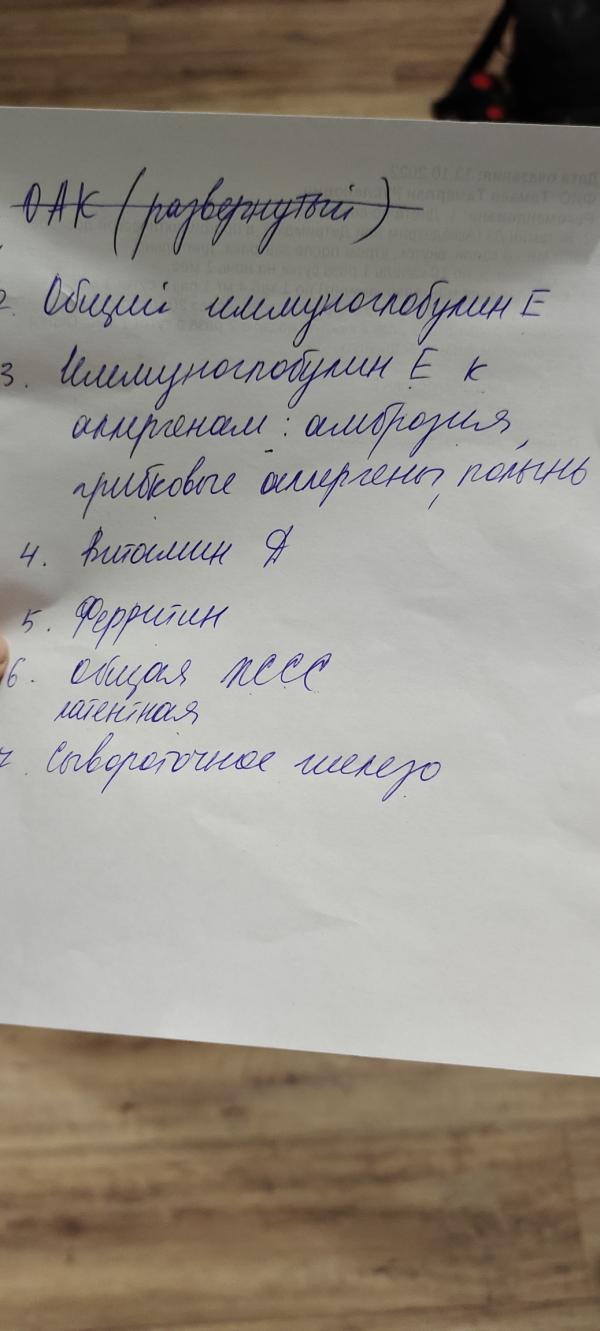 ОАК (развернутый)
2. Общий иммуноглобулин E
3. Иммуноглобулин E к
аллергенам: амброзия,
грибковые аллергены, полынь
4. Витамин Д
5. Ферритин
6. Общая ЖСС
латентная
7. Сывороточное железо